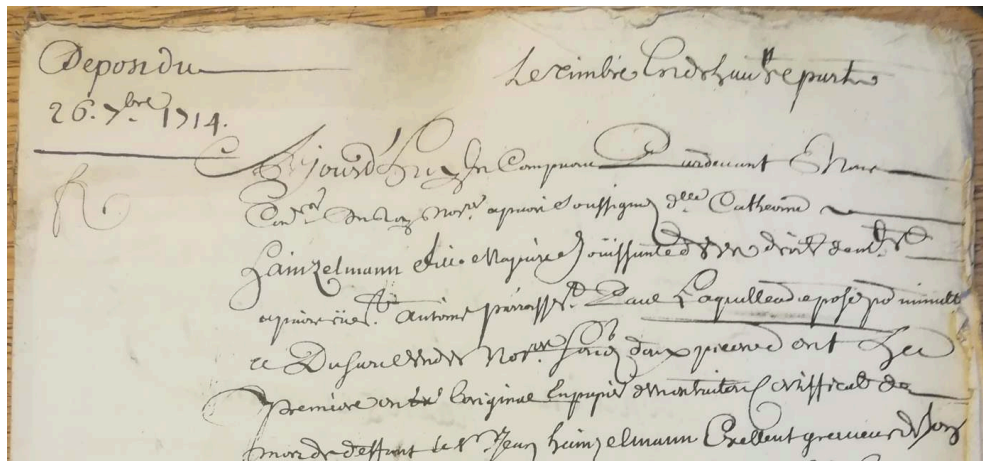 Deposition du
26. 7.bre 1714.
Le timbre est d'autre part
Aujourd'huy En Comparu Pardevant Nous
Con.ers du Roy Nores. a paris soussignez d.lle Catherine
hainzelmann fille Majeure Jouissante de ses droits dem.te
a paris rue S.t Antoine parroisse S.t Paul Laquelle a deposé po.r minutte
a Dusart L'un des Nores. soussig. deux pieces dont La
premiere est L'original En papier d'un Extrait Certifficat de
mort de deffunt le S.r Jean hainzelmann Exellent graveur de Son